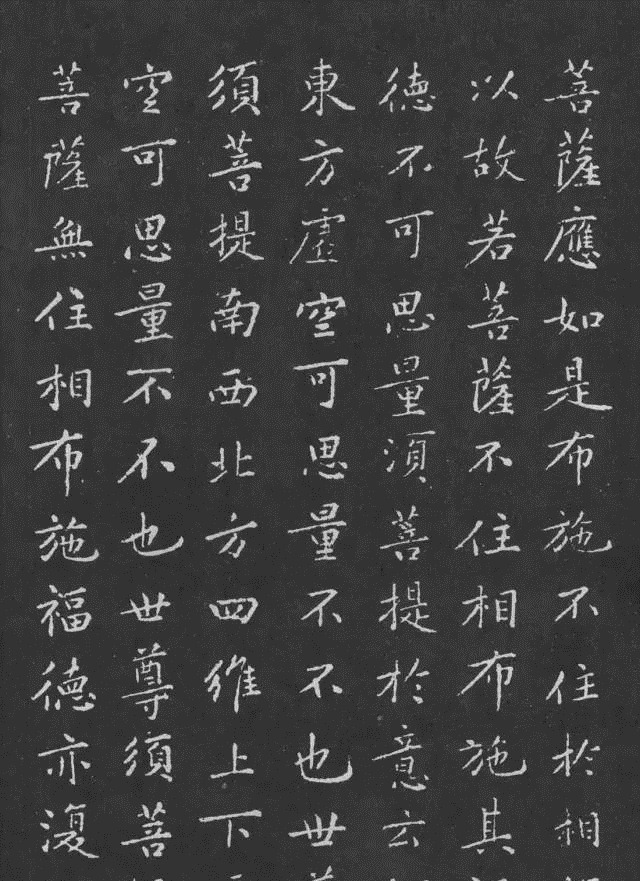 菩薩應如是布施不住於相
以故若菩薩不住相布施其
德不可思量須菩提於意云
東方虛空可思量不不也世
須菩提南西北方四維上下
空可思量不不也世尊須菩
菩薩無住相布施福德亦復